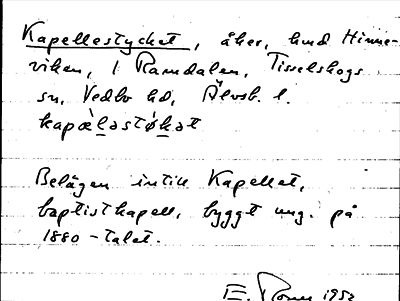 Kapellestycket, åker, hmd Hinne-
viken, i Ramdalen, Tisselskogs
sn, Vedbo hd, Älvsb. l.
kapæ̀ləstø̀kət
Belägen intill Kapellet,
baptistkapell, byggt ung. på
1880-talet.
E. 1952